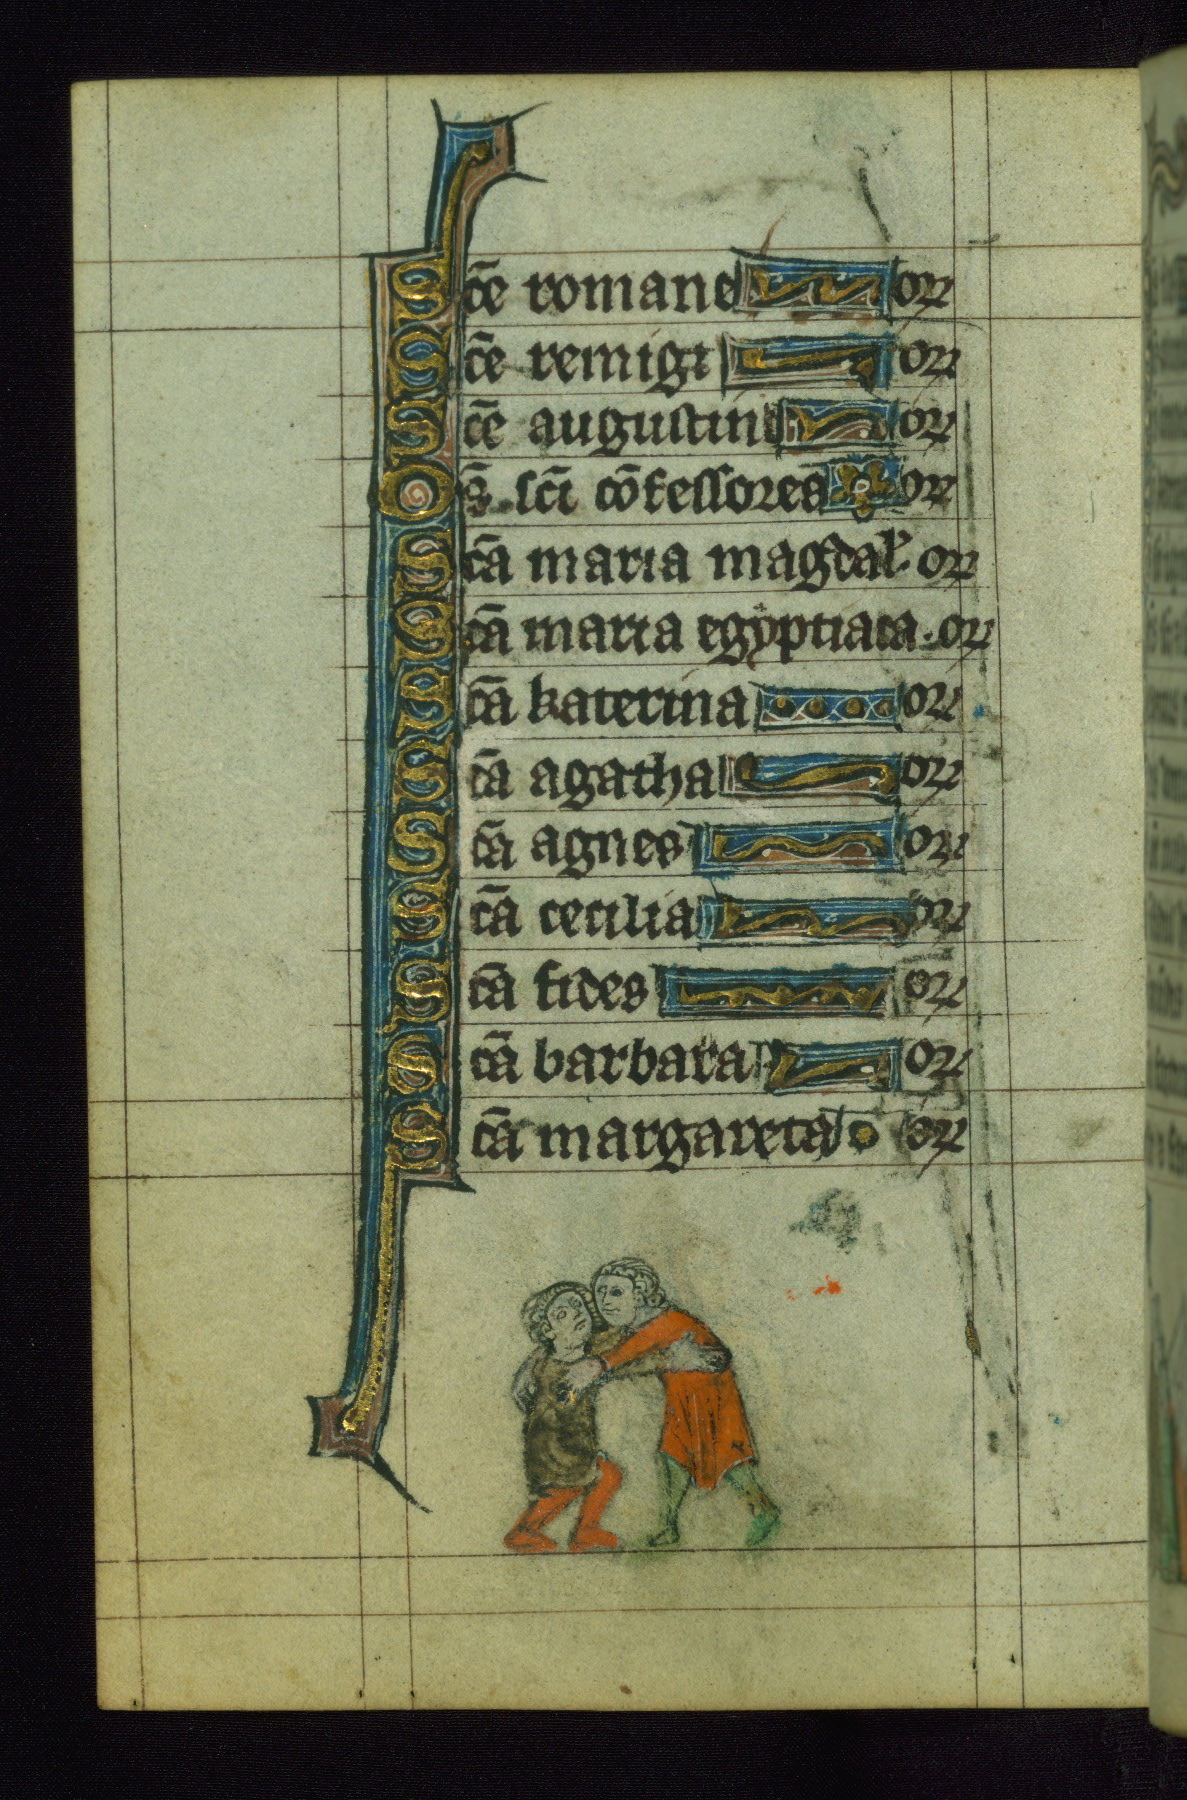 Sc̄e romane or
Sc̄e remigi or
Sc̄e augustine or
Om̄s sc̄i cōfessores or
Sc̄a maria magdal' or
Sc̄a maria egyptiaca. or
Sc̄a katerina or
Sc̄a agatha or
Sc̄a agnes or
Sc̄a cecilia or
Sc̄a fides or
Sc̄a barbara or
Sc̄a margareta or